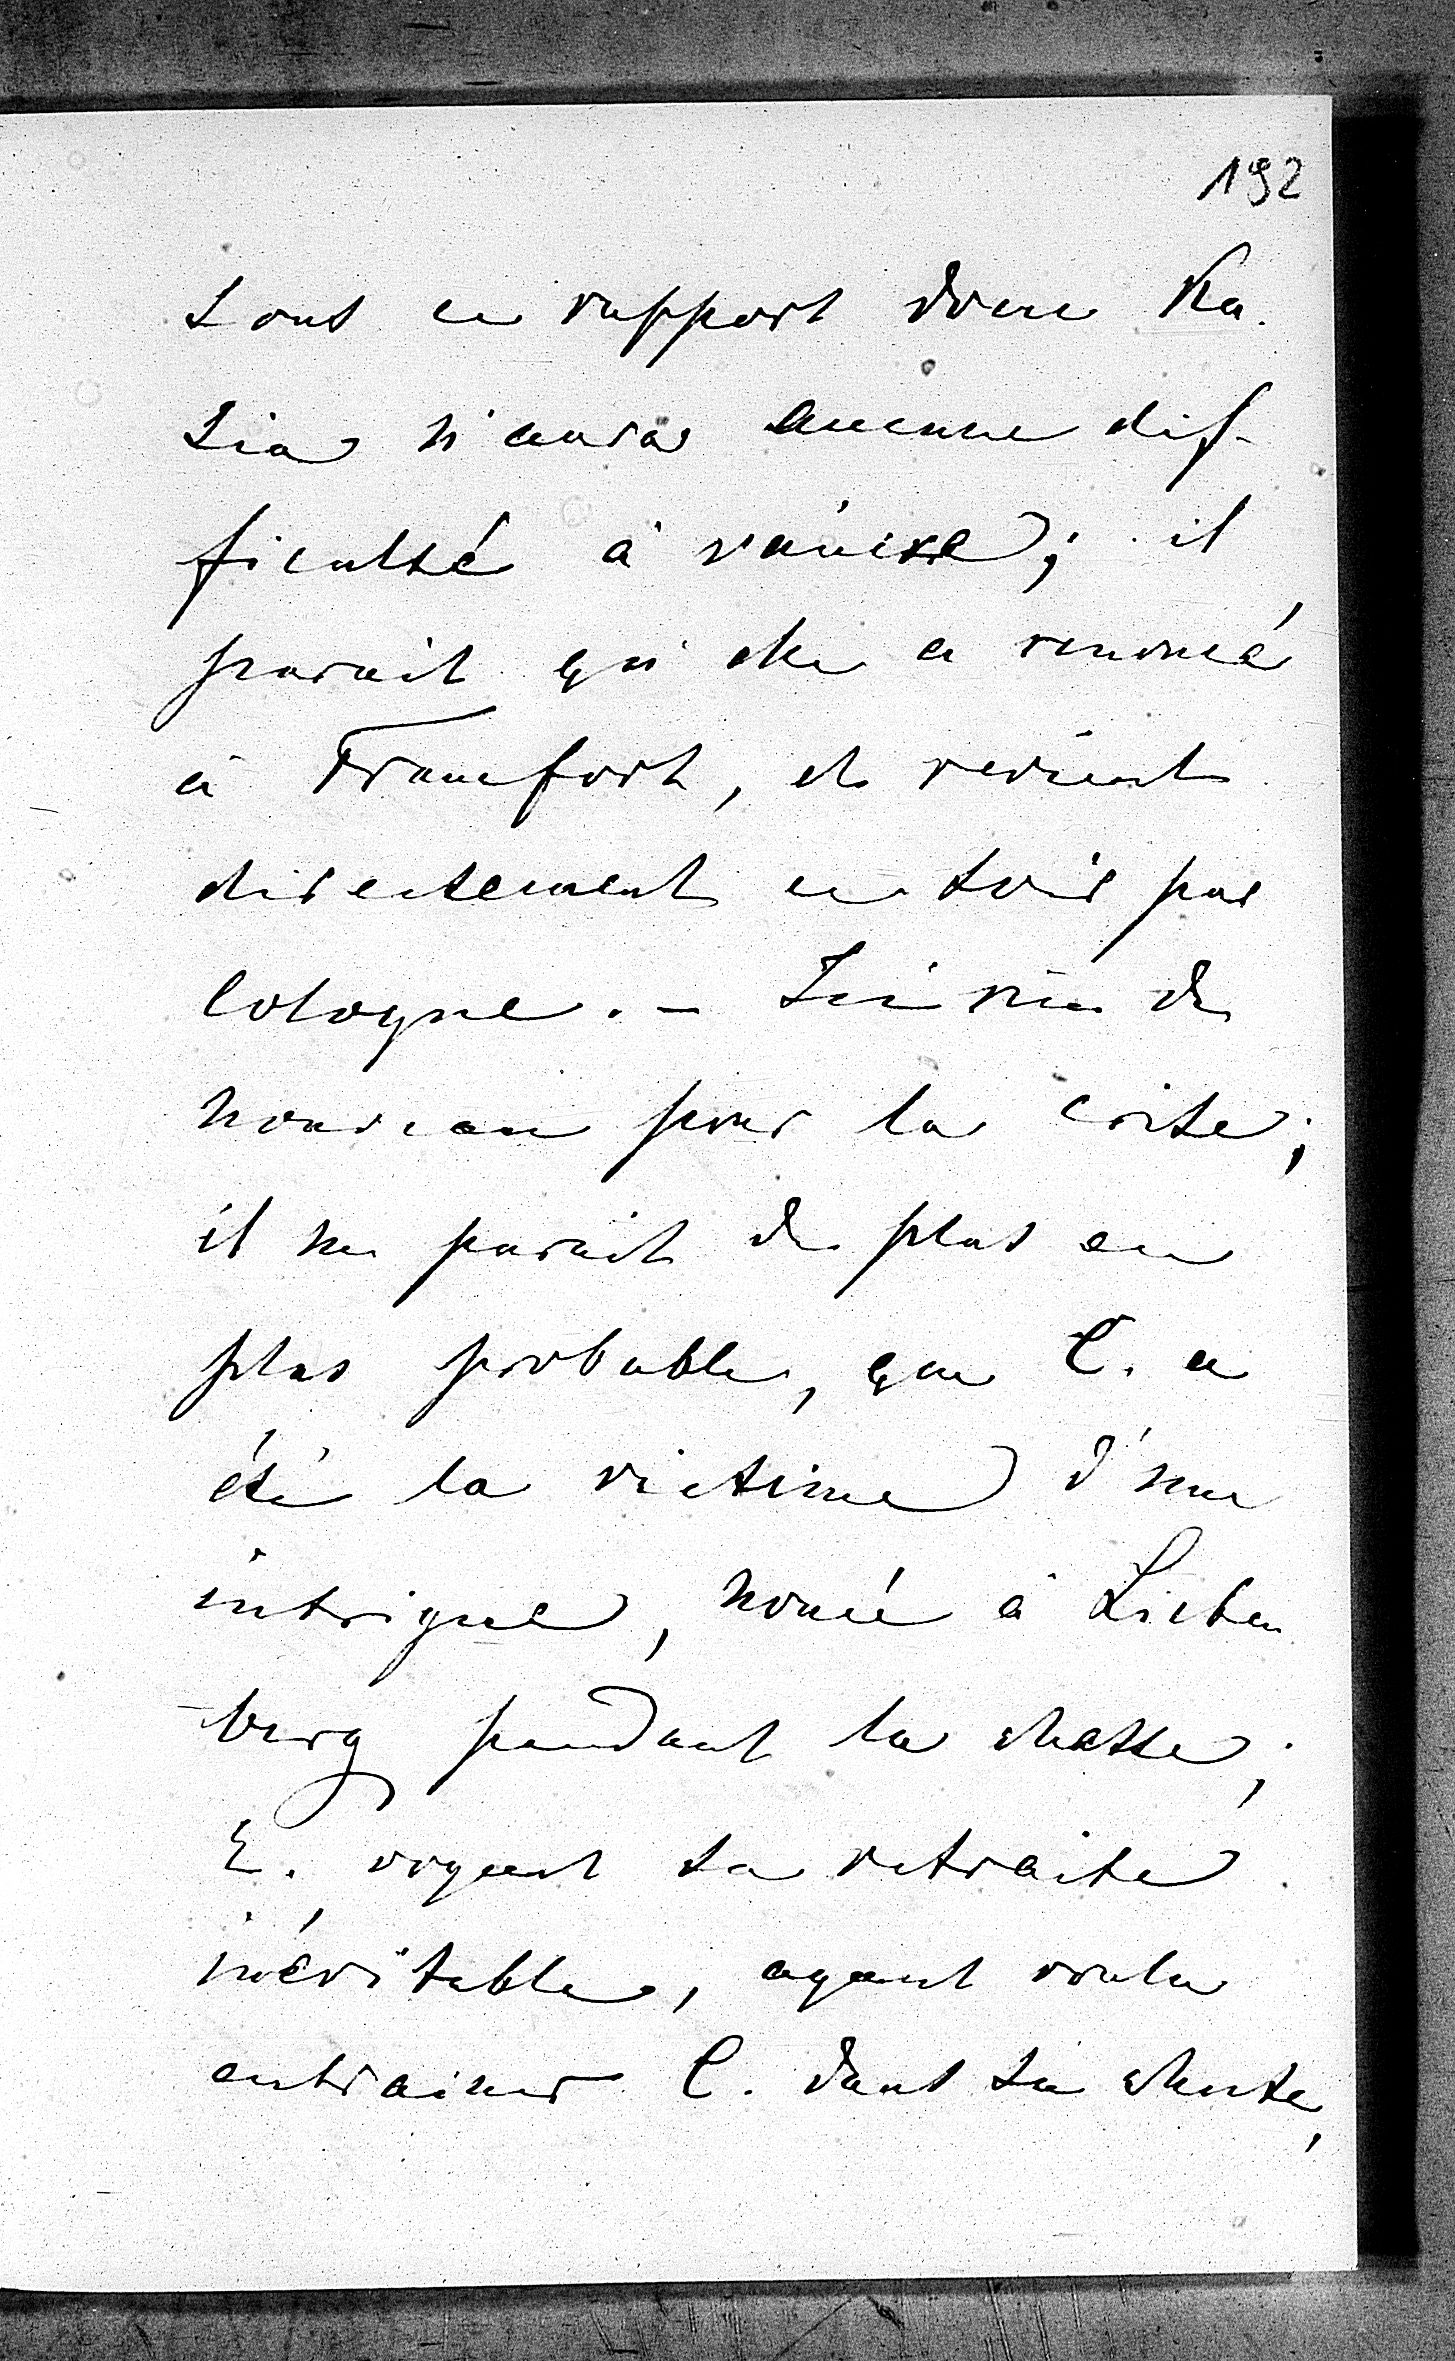 192
sous ce rapport donc Ka-
tia n'aura aucune dif-
ficulté à vaincre; il
parait qu'elle a renoncé
à Francfort, et revient
directement ce soir par
Cologne. – Ici rien de
nouveau pour la crise;
il me parait de plus en
plus probable, que C. a
été la victime d'une
intrigue, nouée à Lieben
-berg pendant la chasse;
E., voyant sa retraite
inévitable, ayant voulu
entrainer C. dans sa chute,